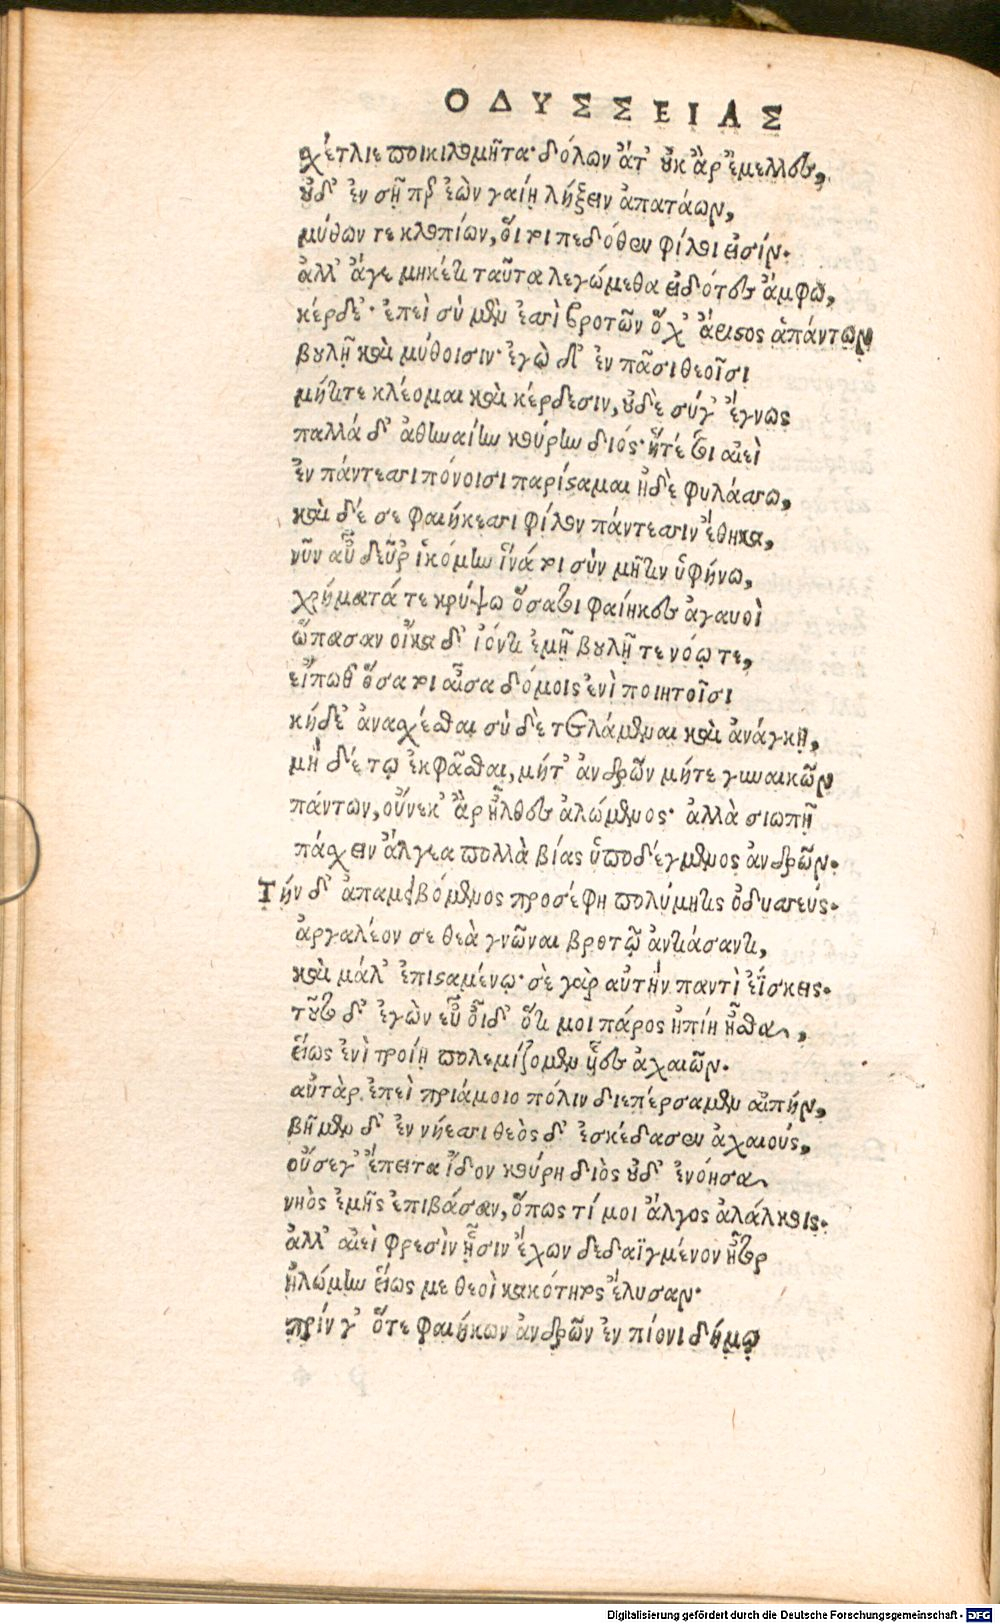 ΟΔΥΣΣΕΙΑΣ
σχέτλιε ποικιλομῆτα· δόλων ἆτ' οὐκ ἂρ ἔμελλες,
οὐδ' ἐν σῇ περ ἐὼν γαίῃ λήξειν ἀπατάων,
μύθων τε κλοπίων, οἵ τοι πεδόθεν φίλοι εἰσίν.
ἀλλ' ἄγε μηκέτι ταῦτα λεγώμεθα εἰδότες ἄμφω,
κέρδε'· ἐπεὶ σὺ μὲν ἐσσὶ βροτῶν ὄχ' ἄριστος ἁπάντων
βουλῇ καὶ μύθοισιν· ἐγὼ δ' ἐν πᾶσι θεοῖσι
μήτι τε κλέομαι καὶ κέρδεσιν, οὐδὲ σύγ' ἔγνως
παλλάδ' ἀθηναίην κούρην διός· ἥτέ τοι αἰεὶ
ἐν πάντεσσι πόνοισι παρίσταμαι ἠδὲ φυλάσσω,
καὶ δέ σε φαιήκεσσι φίλον πάντεσσιν ἔθηκα,
νῦν αὖ δεῦρ' ἱκόμην ἵνά τοι σὺν μῆτιν ὑφήνω,
χρήματά τε κρύψω ὅσα τοι φαίηκες ἀγαυοὶ
ὤπασαν οἴκαδ' ἰόντι ἐμῇ βουλῇ τε νόῳ τε,
εἴπωθ' ὅσα τοι αἶσα δόμοις ἐνὶ ποιητοῖσι
κήδε' ἀνασχέσθαι σὺ δὲ τετλάμεναι καὶ ἀνάγκῃ,
μὴ δέ τῳ ἐκφᾶσθαι, μήτ' ἀνδρῶν μήτε γυναικῶν
πάντων, οὕνεκ' ἂρ ἦλθες ἀλώμενος· ἀλλὰ σιωπῇ
πάσχειν ἄλγεα πολλὰ βίας ὑποδέγμενος ἀνδρῶν.
Τήν δ' ἀπαμειβόμενος προσέφη πολύμητις ὀδυσσεύς.
ἀργαλέον σε θεὰ γνῶναι βροτῷ ἀντιάσαντι,
καὶ μάλ' ἐπισταμένῳ· σὲ γὰρ αὐτὴν παντὶ ἐΐσκεις.
τοῦτο δ' ἐγὼν εὖ οἶδ' ὅτι μοι πάρος ἠπίη ἦσθα,
εἵως ἐνὶ τροίῃ πολεμίζομεν ᾗες ἀχαιῶν.
αὐτὰρ ἐπεὶ πριάμοιο πόλιν διεπέρσαμεν αἰπήν,
βῆμεν δ' ἐν νήεσσι θεὸς δ' ἐσκέδασεν ἀχαιούς,
οὔσεγ' ἔπειτα ἴδον κούρη διὸς οὐδ' ἐνόησα
νηὸς ἐμῆς ἐπιβάσαν, ὅπως τί μοι ἄλγος ἀλάλκοις.
ἀλλ' αἰεὶ φρεσὶν ᾗσιν ἔχων δεδαϊγμένον ἦτορ
ἠλώμην εἵως με θεοὶ κακότητος ἔλυσαν.
πρίν γ' ὅτε φαιήκων ἀνδρῶν ἐν πίονι δήμῳ
Digitalisierung gefördert durch die Deutsche Forschungsgemeinschaft - DFG